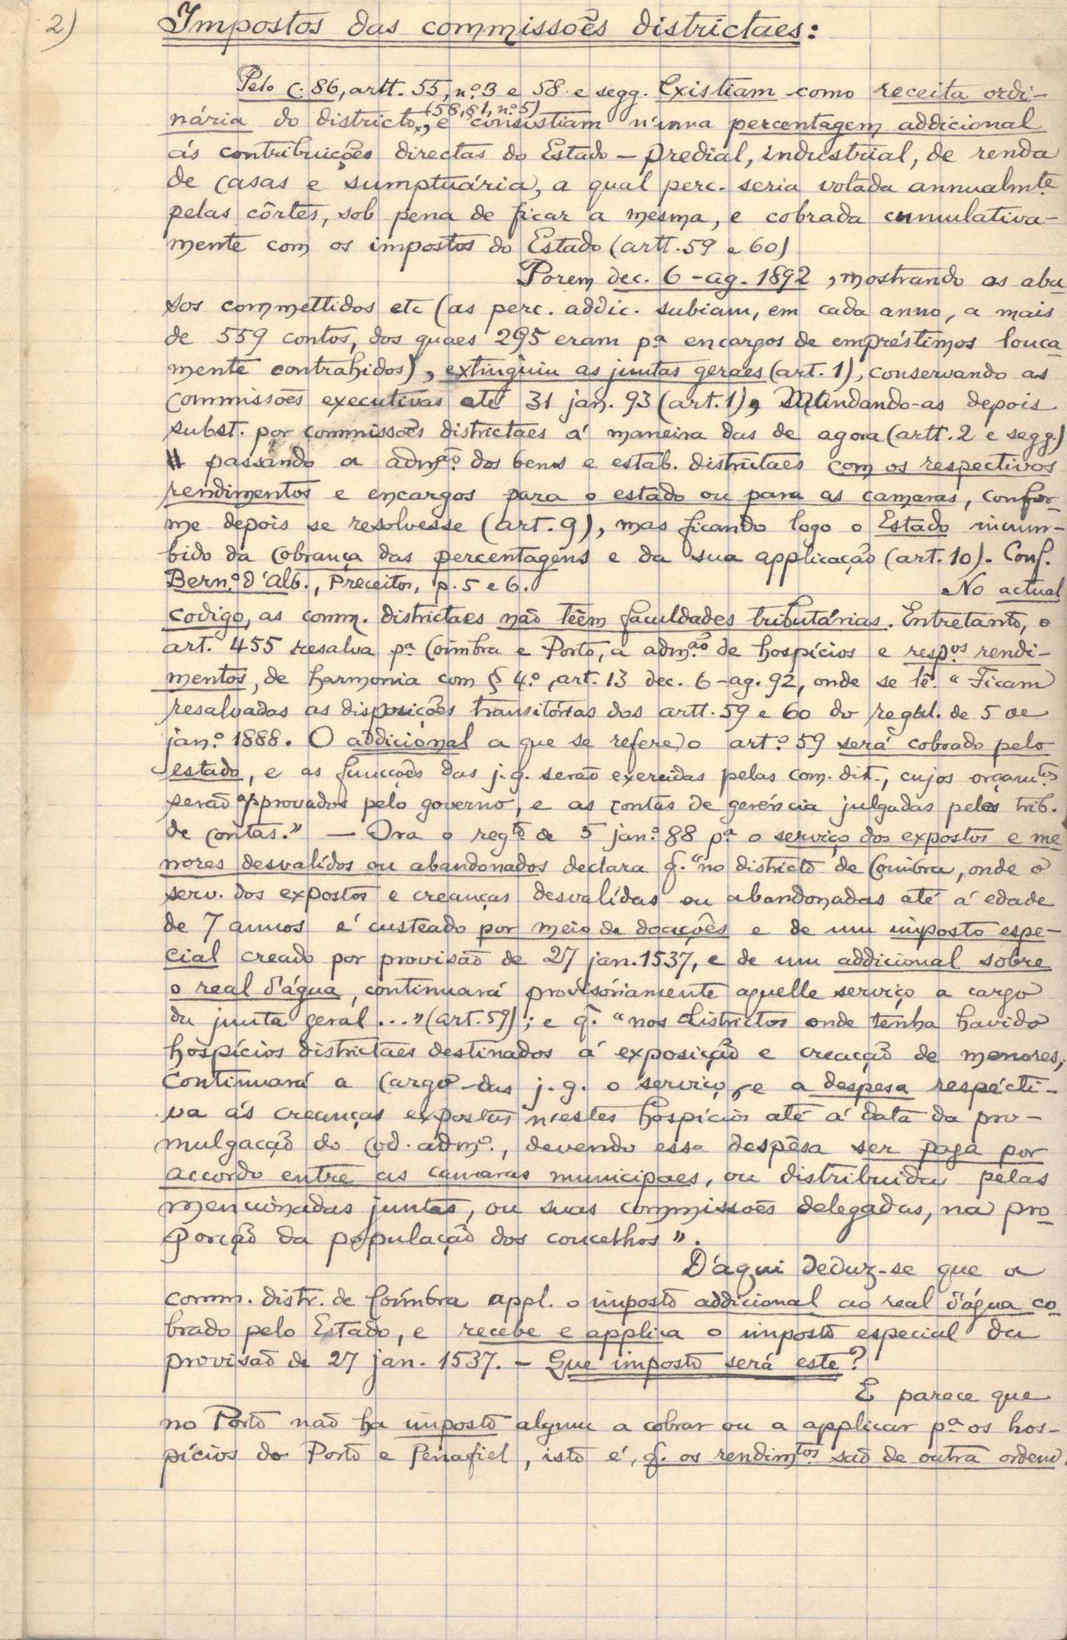 2)
Impostos das commissões districtaes:
Pelo C. 86, artt. 55, nº 3 e 58 e segg. Existiam como receita ordi-
(58, § 1, nº 5)
nária do districto, e consistiam n'uma percentagem addicional
ás contribuições directas do Estado — predial, industrial, de renda
de casas e sumptuária, a qual perc. seria votada annualmte
pelas côrtes, sob pena de ficar a mesma, e cobrada cumulativa-
mente com os impostos do Estado (artt. 59 e 60)
Porem dec. 6-ag. 1892, mostrando os abu
sos commettidos etc (as perc. addic. subiam, em cada anno, a mais
de 559 contos, dos quaes 295 eram pª encargos de empréstimos louca
mente contrahidos), extinguiu as juntas geraes (art. 1), conservando as
commissões executivas até 31 jan. 93 (art. 1), Mandando-as depois
subst. por commissões districtaes á maneira das de agora (artt. 2 e segg.)
passando a admão dos bens e estab. districtaes com os respectivos
rendimentos e encargos para o estado ou para as camaras, confor-
me depois se resolvesse (art. 9), mas ficando logo o Estado incum-
bido da cobrança das percentagens e da sua applicação (art. 10). Conf.
Bern.º d'Alb., Preceitos, p. 5 e 6.
No actual
codigo, as comm. districtaes não têem faculdades tributárias. Entretanto, o
art. 455 resalva pª Coimbra e Porto, a admão de hospícios e respos rendi-
mentos, de harmonia com § 4.º, art. 13 dec. 6-ag. 92, onde se lê: "Ficam
resalvadas as disposições transitórias dos artt. 59 e 60 do regul. de 5 de
jan.º 1888. O addicional a que se refere o art.º 59 será cobrado pelo
estado, e as funcções das j. g. serão exercidas pelas com. dist., cujos orçamtos
serão approvados pelo governo, e as contas de gerência julgadas pelo trib.
de contas." — Ora o regto de 5 jan.º 88 pª o serviço dos expostos e me
nores desvalídos ou abandonados declara q. "no districto de Coimbra, onde o
serv. dos expostos e creanças desvalídas ou abandonadas até á edade
de 7 annos é custeado por meio de doações e de um imposto espe-
cial creado por provisão de 27 jan. 1537, e de um addicional sobre
o real d'água, continuará provisóriamente aquelle serviço a cargo
da junta geral ..." (art. 59); e q. "nos districtos onde tenha havido
hospícios districtaes destinados á exposição e creacção de menores,
continuará a cargo das j. g. o serviço, e a despesa respécti-
va ás creanças expostas n'estes hospícios até á data da pro-
mulgacção do Cod. admº., devendo essa despêsa ser paga por
accordo entre as camaras municipaes, ou distribuida pelas
mencionadas juntas, ou suas commissões delegadas, na pro
porção da população dos concelhos".
D'aqui deduz-se que a
comm. distr. de Coimbra appl. o imposto addicional ao real d'água co
brado pelo Estado, e recebe e applica o imposto especial da
provisão de 27 jan. 1537. — Que imposto será este?
E parece que
no Porto não ha imposto algum a cobrar ou a applicar pª os hos-
pícios do Porto e Penafiel, isto é, q. os rendimtos são de outra ordem.